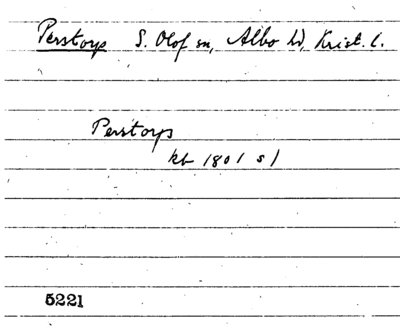 Perstorp S. Olof sn, Albo hd, Krist. l.
Perstorp
kb 1801 s 1
5221